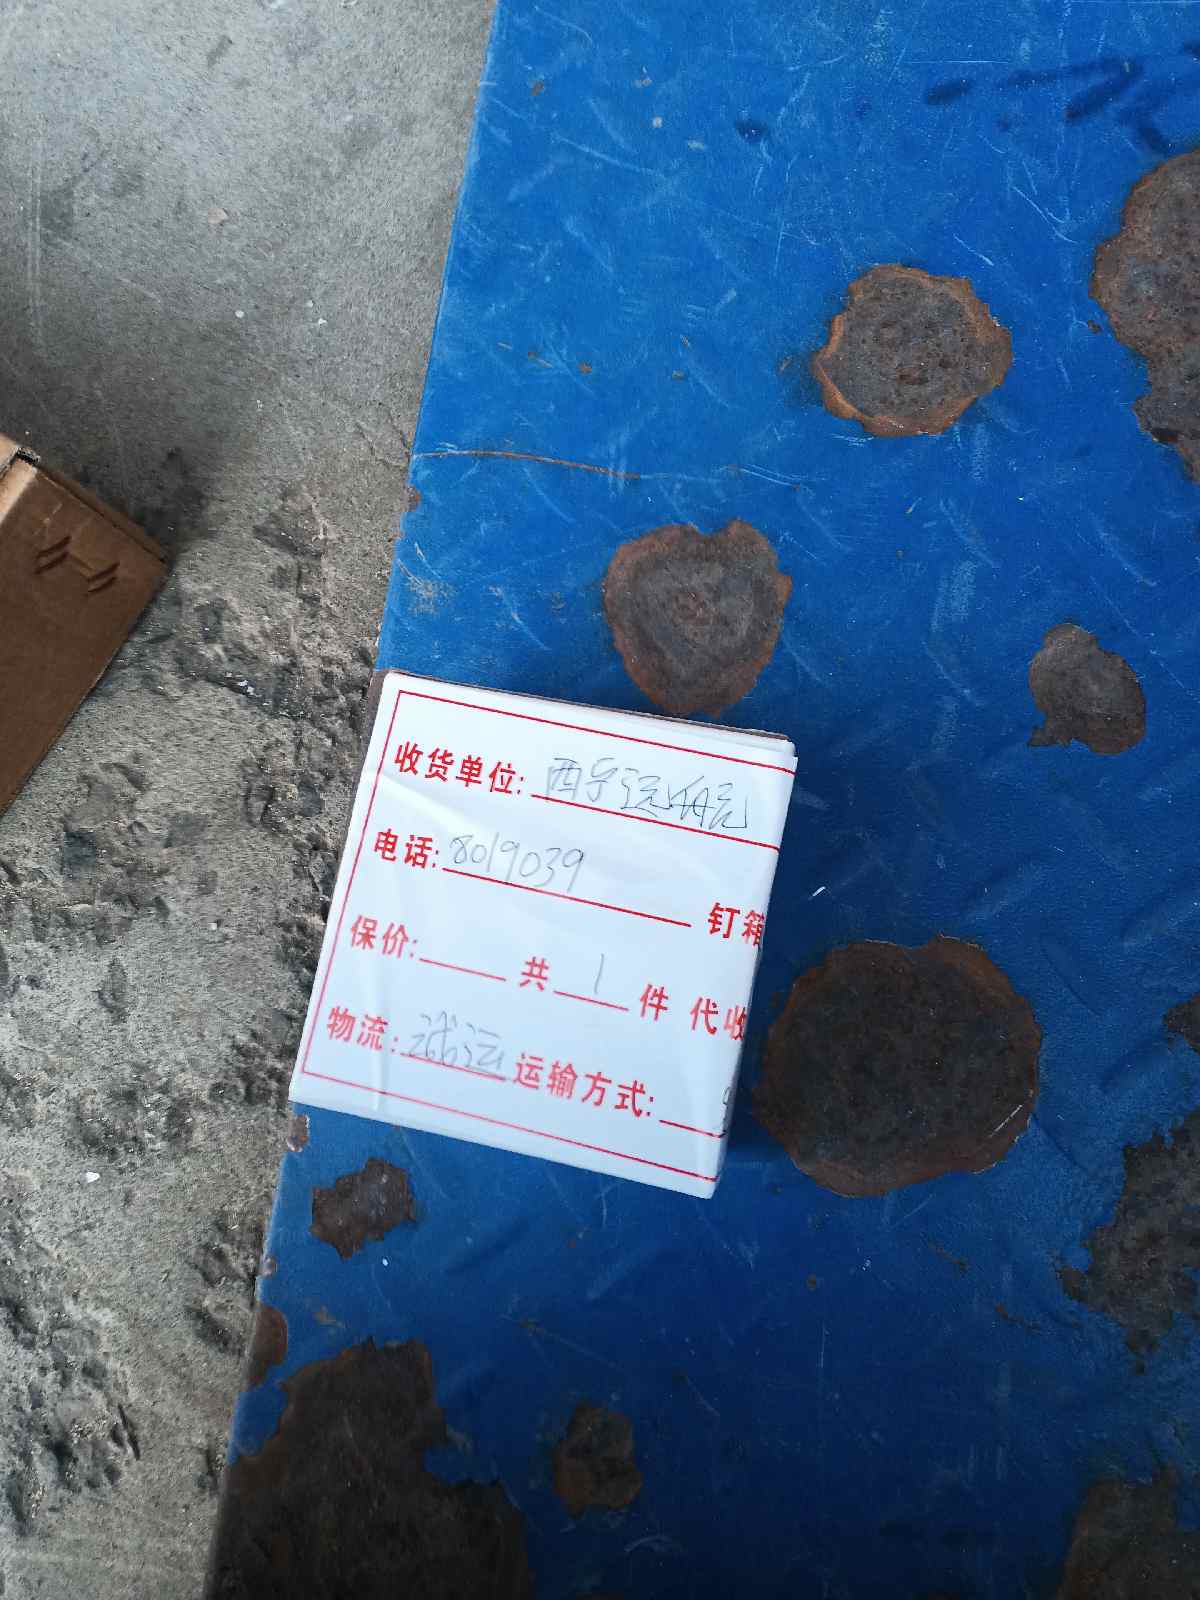 收货单位: 西宁远航
电话: 8019039 钉箱
保价: 共 1 件 代收
物流: 运输方式: